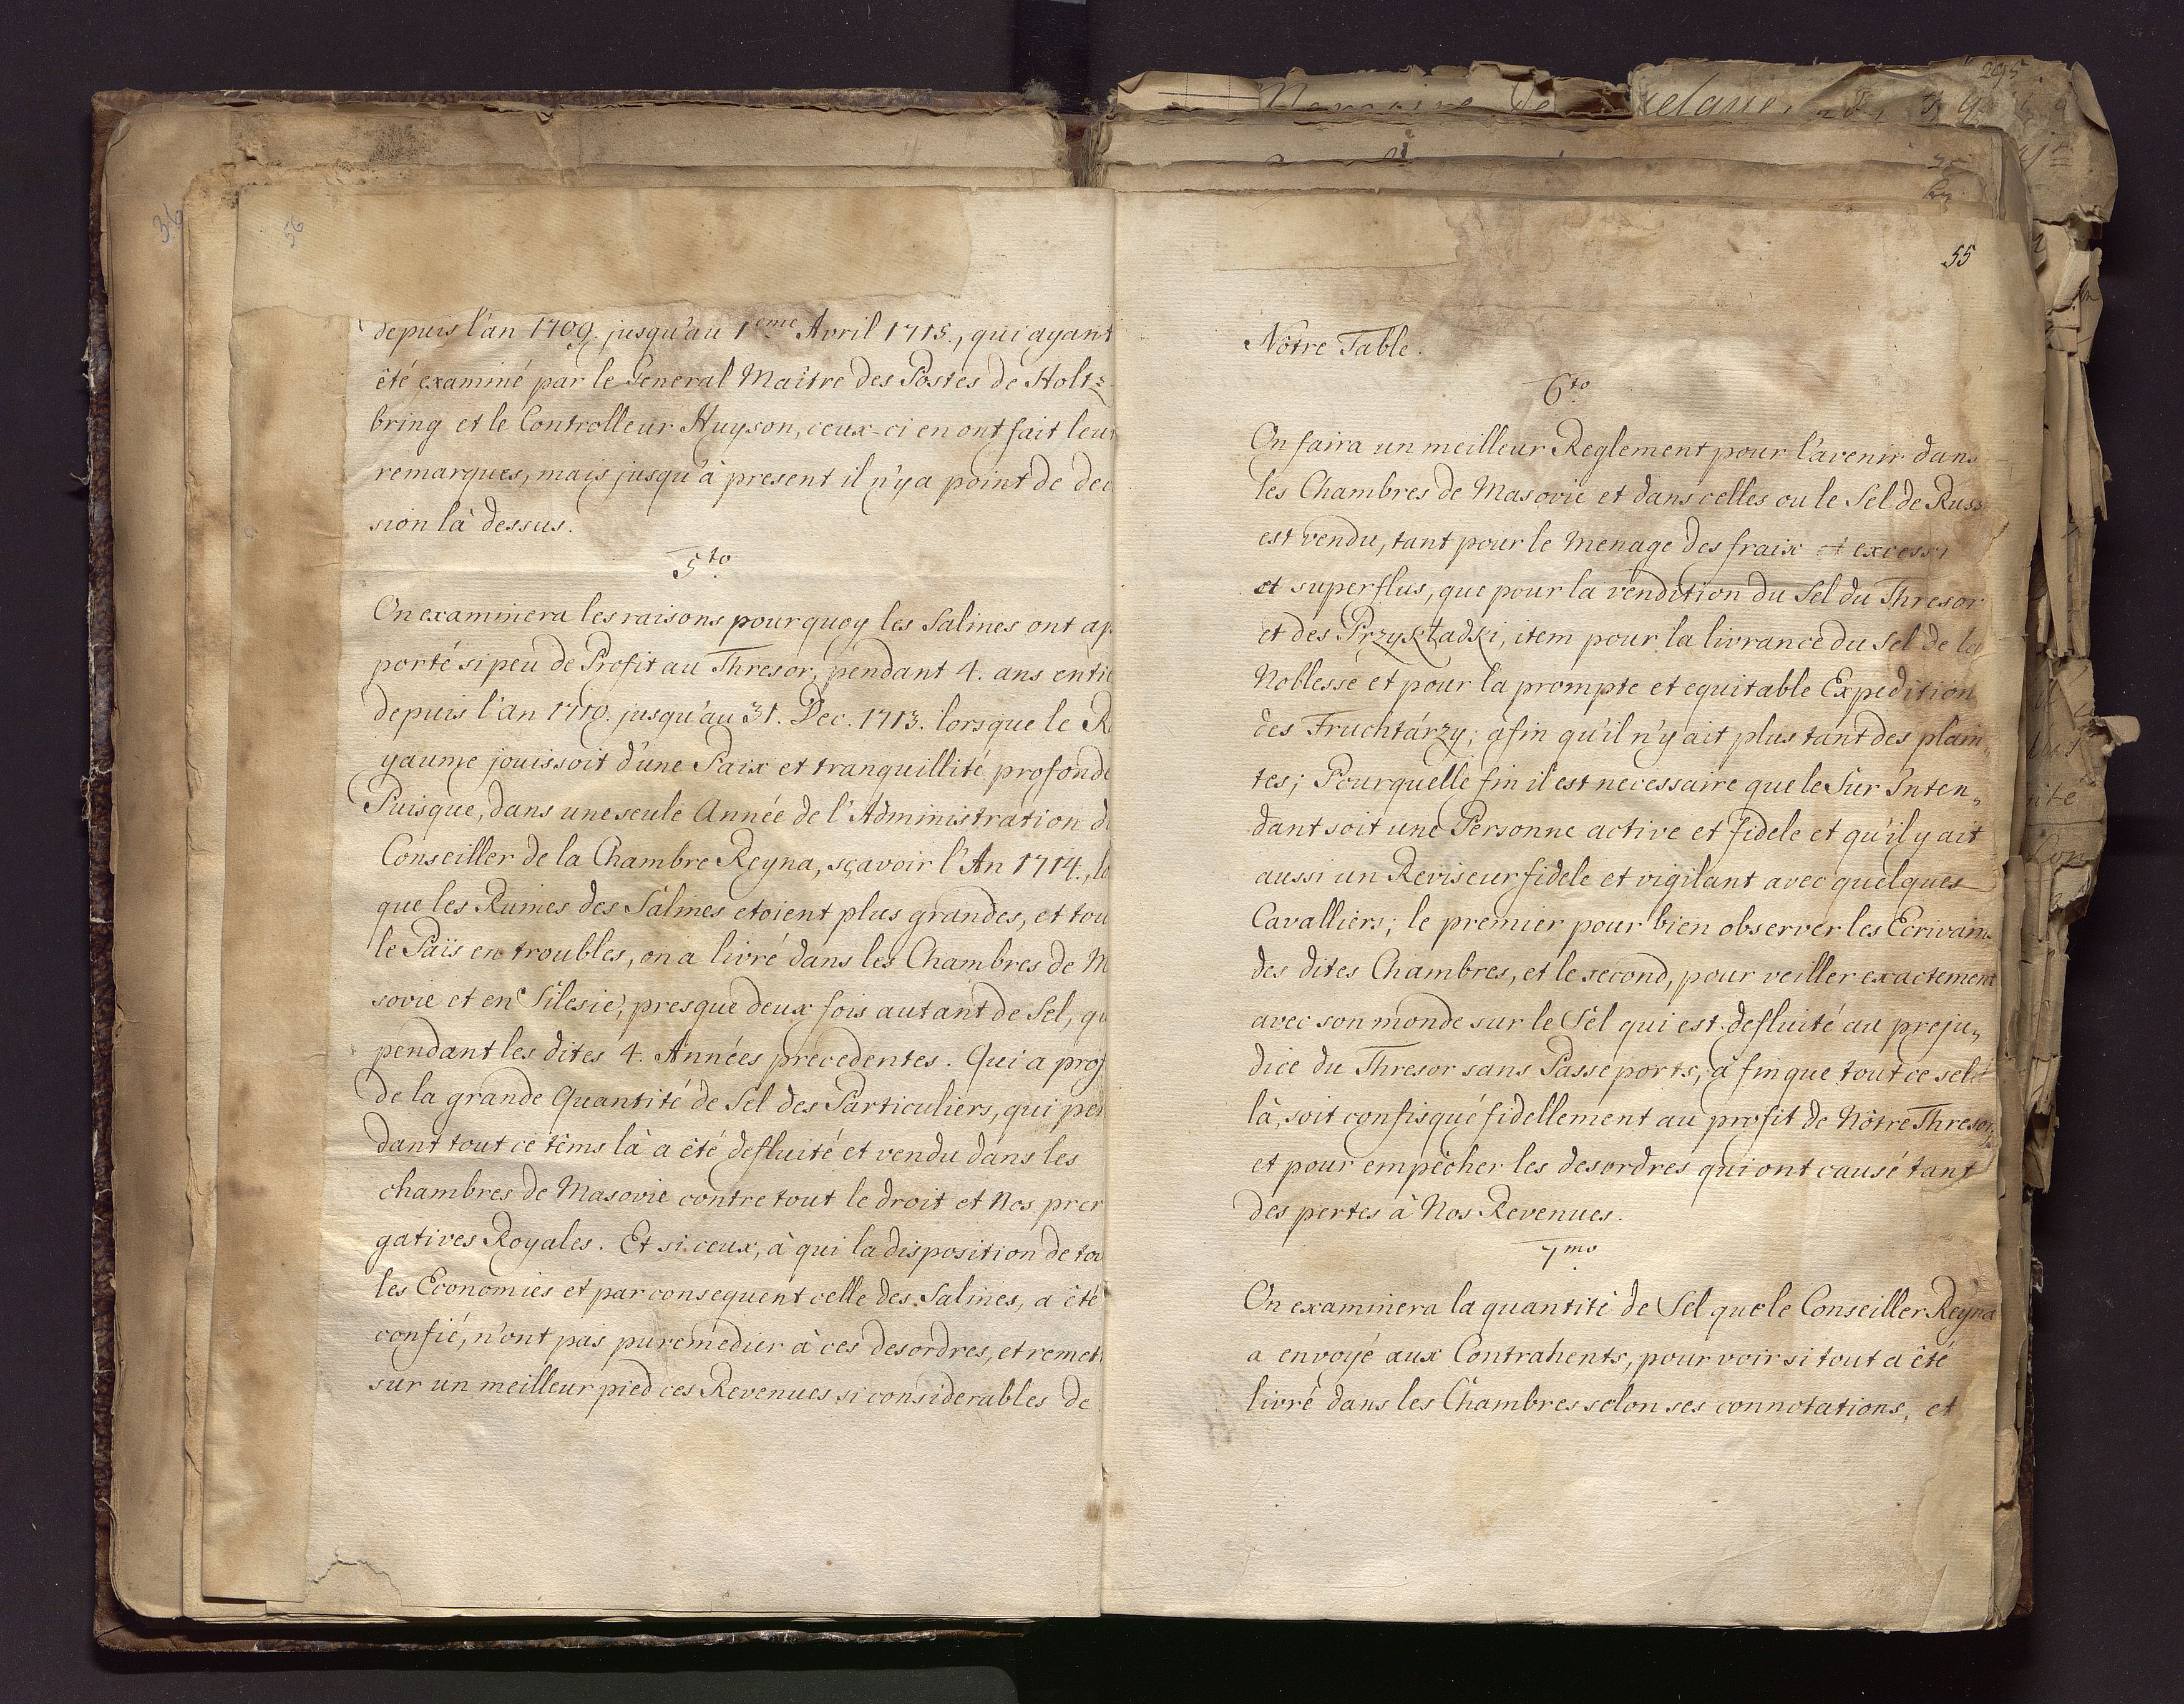 56
depuis l'an 1709. jusqu'au 1eme Avril 1715., qui ayant
êté examiné par le General Maître des Postes de Holtz-
bring et le Controlleur Huyson, ceux-ci en ont fait leur
remarques, mais jusqu'à present il n'y a point de dec
sion là dessus.
5to
On examinera les raisons pourquoy les Salines ont ap
porté si peu de Profit au Thresor, pendant 4. ans entie
depuis l'an 1710. jusqu'au 31. Dec. 1713. lorsque le R
yaume jouissoit d'une Paix et tranquillité profonde
Puisque, dans une seule Année de l'Administration d
Conseiller de la Chambre Reyna, sçavoir l'An 1714., lo
que les Ruines des Salines etoient plus grandes, et tou
le Païs en troubles, on a livré dans les Chambres de M
sovie et en Silesie, presque deux fois autant de Sel, qu
pendant les dites 4. Années précedentes. Qui a prof
de la grande Quantité de Sel des Particuliers, qui pen
dant tout ce têms là a êté defluité et vendu dans les
chambres de Masovie contre tout le droit et Nos prer
gatives Royales. Et si ceux, à qui la disposition de tou
les Economies et par consequent celle des Salines, a êté
confié, n'ont pas pu remedier à ces desordres, et remet
sur un meilleur pied ces Revenues si considerables de
55
Nôtre Table.
6to
On faira un meilleur Reglement pour l'avenir dans
les Chambres de Masovie et dans celles ou le Sel de Russ
est vendu, tant pour le Menage des fraix et excessi
et superflus, que pour la vendition du Sel du Thresor
et des Przykładki, item pour la livrance du Sel de la
Noblesse et pour la prompte et equitable Expedition
des Fruchtárzy; afin qu'il n'y ait plus tant des plain„
tes; Pourquelle fin il est necessaire que le Sur Inten„
dant soit une Personne active et fidele et qu'il y ait
aussi un Reviseur fidele et vigilant avec quelques
Cavalliers; le premier pour bien observer les Ecrivains
des dites Chambres, et le second, pour veiller exactement
avec son monde sur le Sel qui est defluité au preju„
dice du Thresor sans Passeports, à fin que tout ce sel
là, soit confisqué fidellement au profit de Nôtre Thresor,
et pour empêcher les desordres qui ont causé tant
des pertes à Nos Revenues.
7mo
On examinera la quantité de Sel que le Conseiller Reyna
a envoyé aux Contrahents, pour voir si tout a êté
livré dans les Chambres selon ses connotations, et